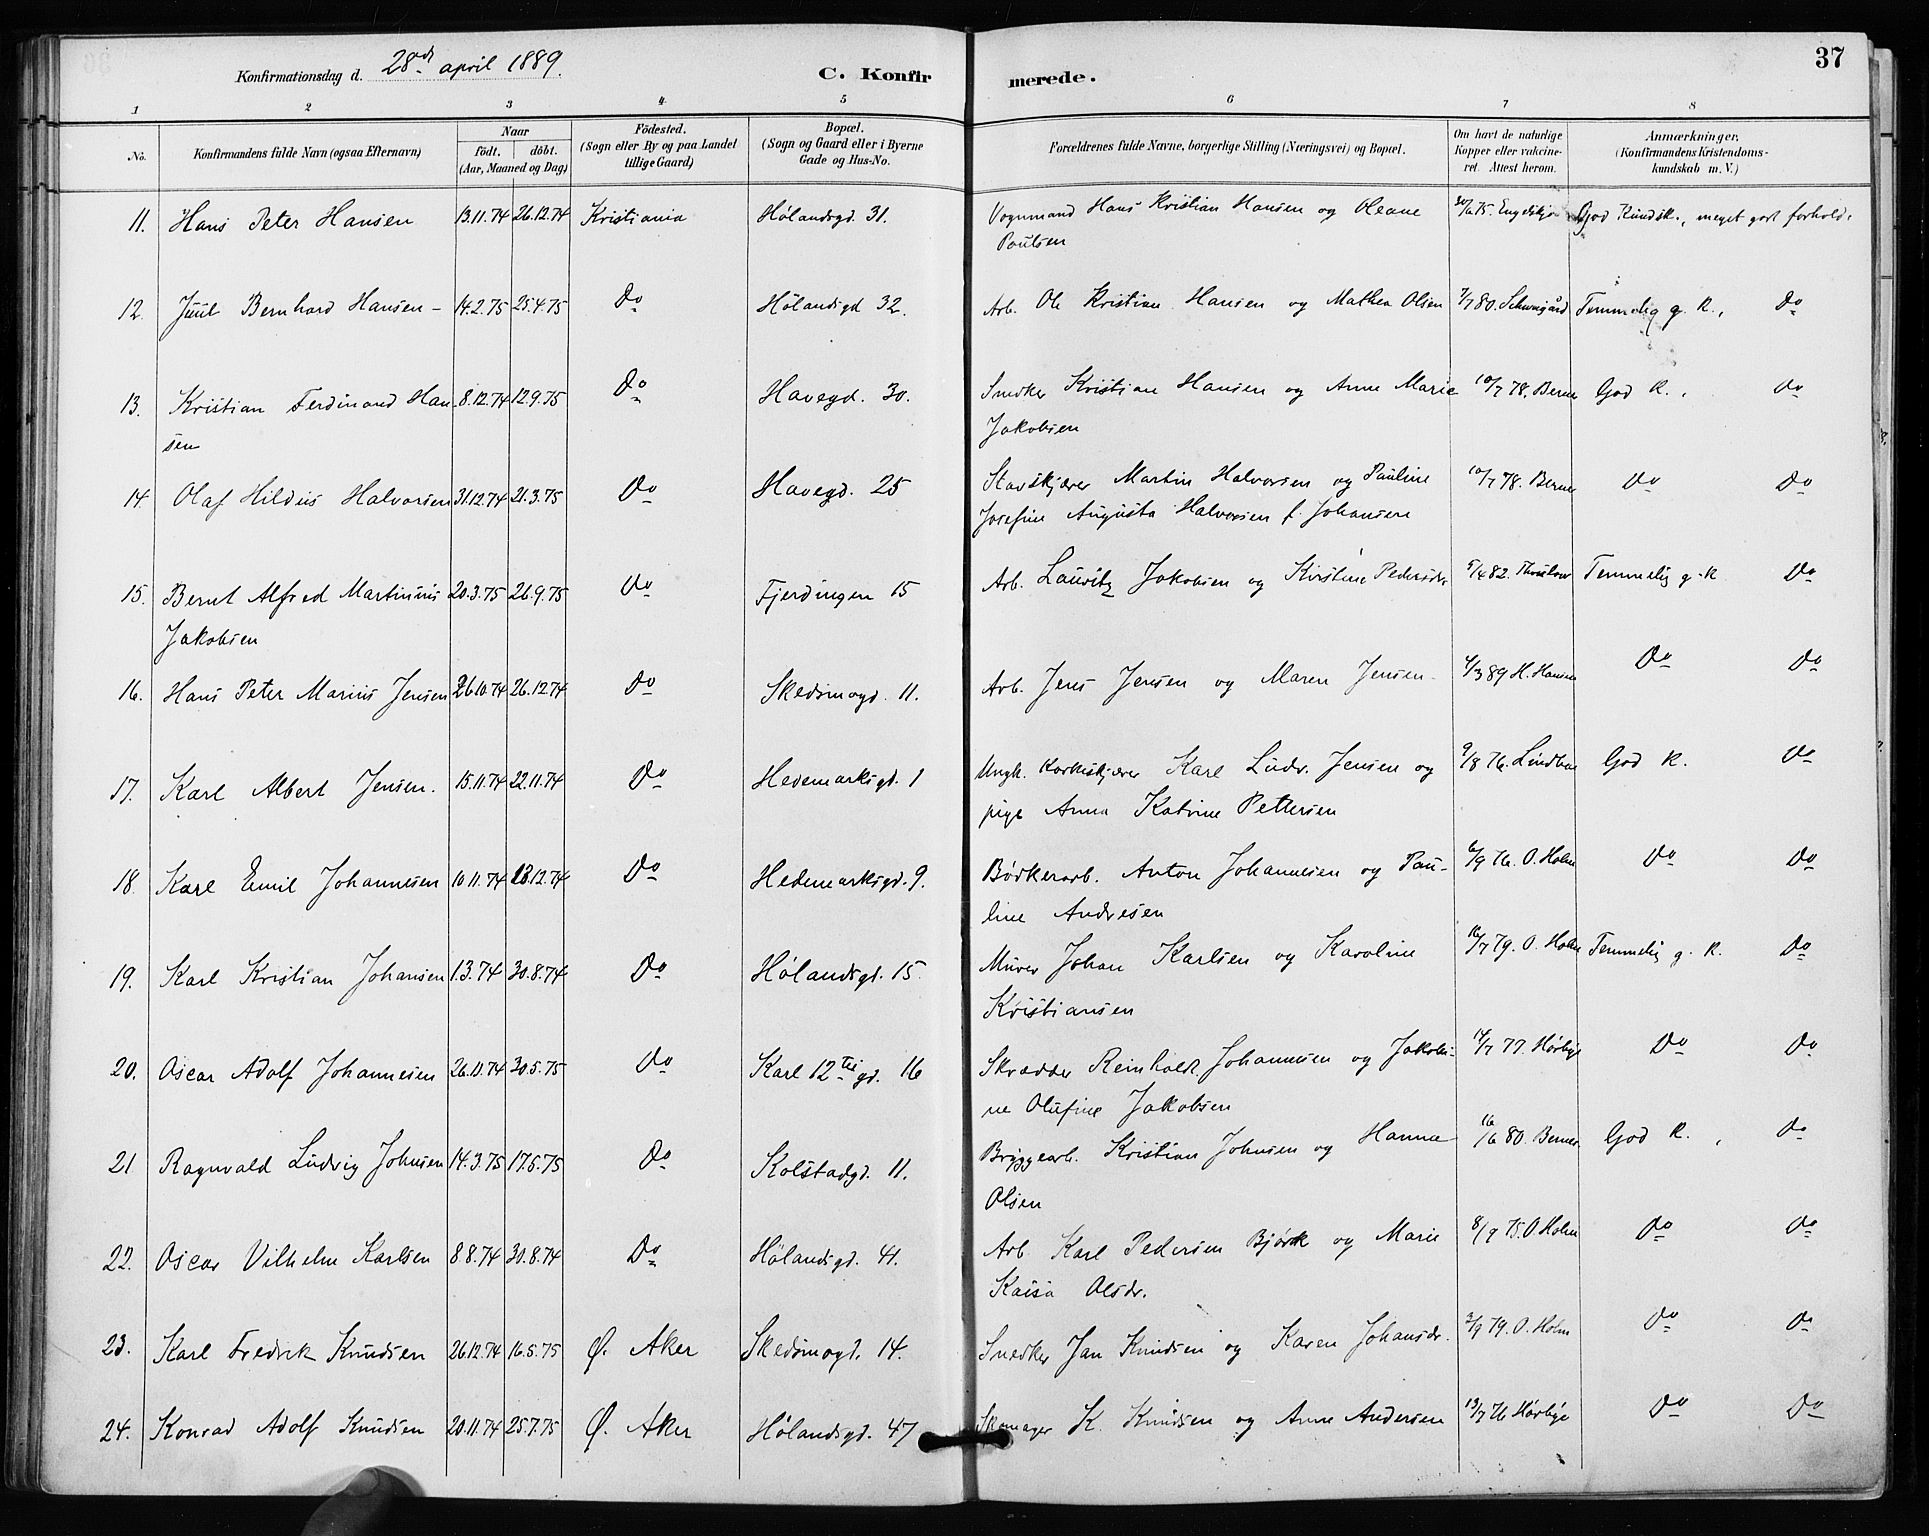 37
Konfirmationsdag d. 28de april 1889.
C. Konfir merede.
1 2 3 4 5 6 7 8
No. Konfirmandens fulde Navn (ogsaa Efternavn) Naar födt. döbt. (Aar, Maaned og Dag) Födested. (Sogn eller By og paa Landet tillige Gaard) Bopæl. (Sogn og Gaard eller i Byerne Gade og Hus-No. Forældrenes fulde Navne, borgerlige Stilling (Næringsvei) og Bopæl. Om havt de naturlige Kopper eller vakcineret. Attest herom. Anmærkninger. (Konfirmandens Kristendomskundskab m. V.)
11. Hans Peter Hansen 13.11.74 26.12.74 Kristiania Hølandsgd. 31. Vognmand Hans Kristian Hansen og Oleane 75. God Kundsk., meget godt forhold.
Paulsen
12. Juul Bernhard Hansen – 14.2.75 25.4.75 Do Hølandsgd 32. Arb. Ole Kristian Hansen og Mathea Olsen 7/7 80. Schweigård Temmelig g. K., Do
13. Kristian Ferdinand Han- 8.12.74 12.9.75 Do Havegd. 30. Snedker Kristian Hansen og Anne Marie 10/7 78. Berner God K., Do
sen Jakobsen
14. Olaf Hildus Halvorsen 31.12.74 21.3.75 Do Havegd. 25 Stavskjærer Martin Halvorsen og Pauline 10/7 78. Berner Do Do
Josefine Augusta Halvorsen f. Johansen
15. Bernt Alfred Martinius 20.3.75 26.9.75 Do Fjerdingen 15 Arb. Lauritz Jakobsen og Kirstine Pedersdr 5/4 82. Thaulow Temmelig g. K Do
Jakobsen
16. Hans Peter Marius Jensen 26.10.74 26.12.74 Do Skedsmogd. 11. Arb. Jens Jensen og Maren Jensen 4/3 89 H. Hansen Do Do
17. Karl Albert Jensen. 15.11.74 22.11.74 Do Hedemarksgd. 1 Ungk. Korkskjærer Karl Ludv. Jensen og 9/8 76. God K. Do
pige Anna Katrine Pettersen
18. Karl Emil Johannesen 10.11.74 13.12.74 Do Hedemarksgd. 9. Bødkerarb. Anton Johannesen og Pau- 6/9 76. O. Holm Do Do
line Andresen
19. Karl Kristian Johansen 1.3.74 30.8.74 Do Hølandsgd. 15. Murer Johan Karlsen og Karoline 16/7 79. O. Holm Temmelig g. K. Do
Kristiansen
20. Oscar Adolf Johannesen 26.11.74 30.5.75 Do Karl 12tes gd. 16 Skrædder Reinholdt Johannesen og Jakobi- 14/7 77. Hørbye Do Do
ne Olufine Jakobsen
21 Ragnvald Ludvig Johnsen 14.3.75 17.5.75 Do Kolstadgd. 11. Bryggearb. Kristian Johnsen og Hanna 16/6 80. Berner. God K., Do
Olsen
22. Oscar Vilhelm Karlsen 8.8.74 30.8.74 Do Hølandsgd. 41. Arb. Karl Pedersen Bjørk og Marie 8/9 75. O. Holm Do Do
Kaisa Olsdr.
23. Karl Fredrik Knudsen 26.12.74 16.5.75 Ø. Aker Skedsmogd. 14. Snedker Jan Knudsen og Karen Johansdr. 3/9 79. O. Holm Do Do
24. Konrad Adolf Knudsen 20.11.74 25.7.75 Ø. Aker Hølandsgd. 47 Skomager K. Knudsen og Anne Andersen 13/7 76 Hørbye Do Do